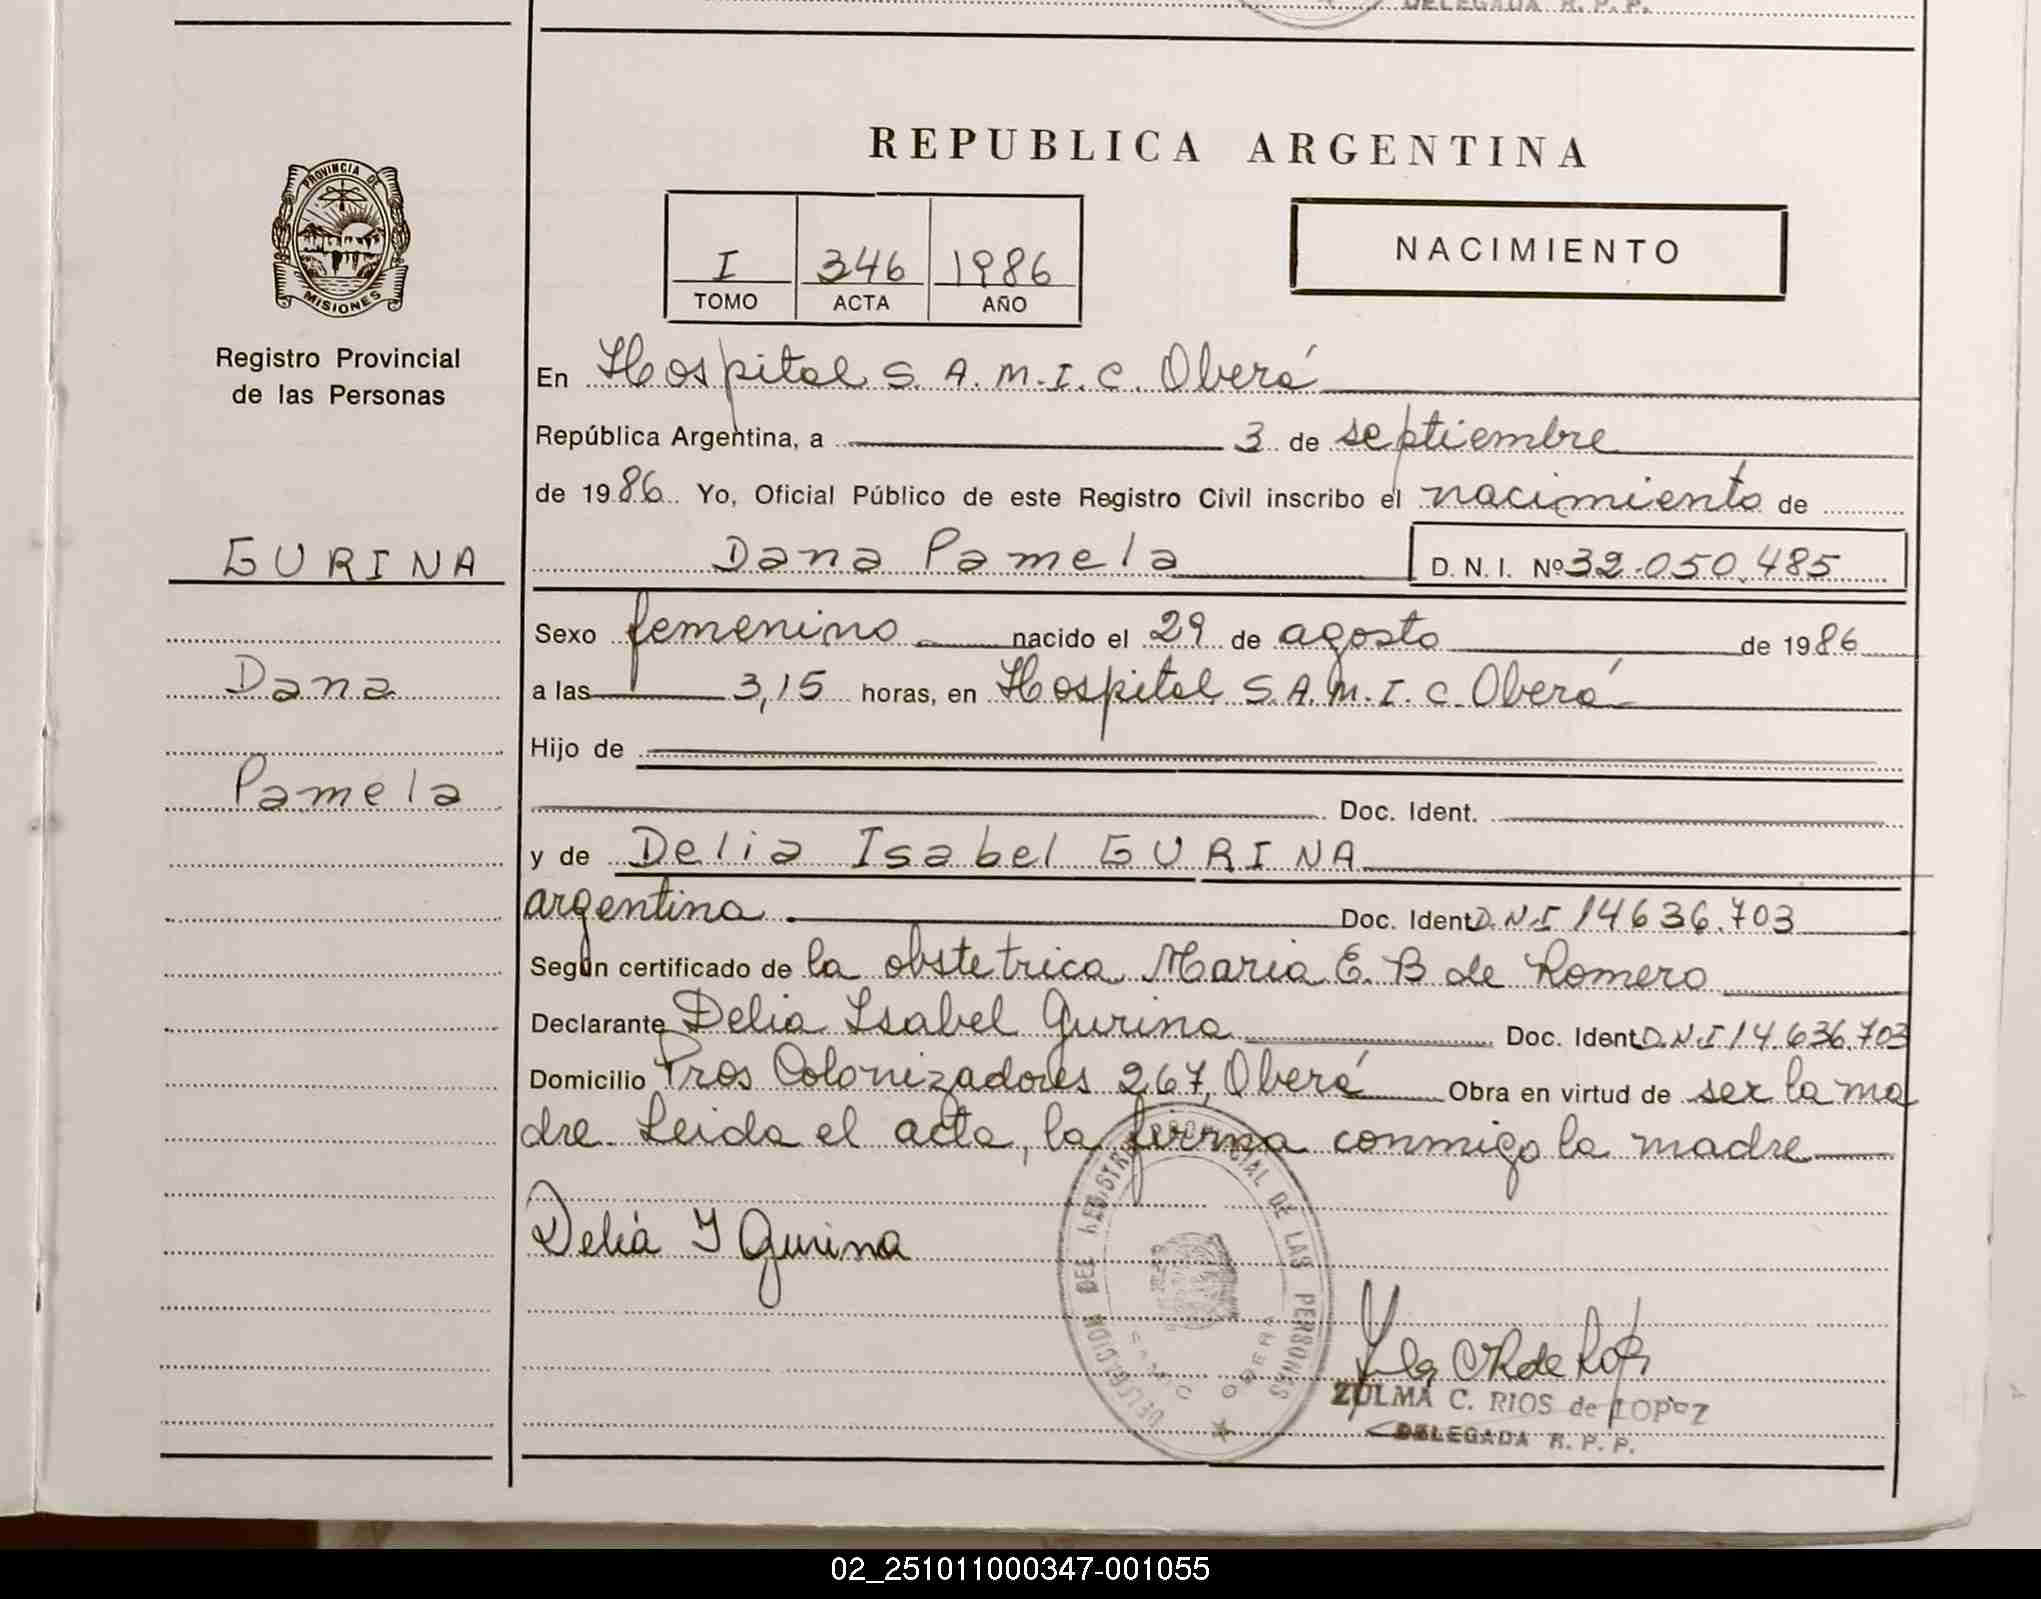 DELEGADA R. P. P.
REPUBLICA ARGENTINA
PROVINCIA DE
MISIONES
I 346 1986
TOMO ACTA AÑO
NACIMIENTO
Registro Provincial
de las Personas
En Hospital S. A. M. I. C. Oberá
República Argentina, a 3 de septiembre
de 1986 Yo, Oficial Público de este Registro Civil inscribo el nacimiento de
GURINA
Dana Pamela D. N. I. Nº 32.050.485
Sexo femenino nacido el 29 de agosto de 1986
Dana
a las 3,15 horas, en Hospital S. A. M. I. C. Oberá
Hijo de
Pamela
Doc. Ident.
y de Delia Isabel GURINA
argentina Doc. Ident D.N.I 14636.703
Según certificado de la obstetrica Maria E. B de Romero
Declarante Delia Isabel Gurina Doc. Ident D.N.I 14.636.703
Domicilio Pros Colonizadores 267, Oberá Obra en virtud de ser la ma
dre. Leida el acta, la firma conmigo la madre
Delia I Gurina
DELEGACION DEL REGISTRO PROVINCIAL DE LAS PERSONAS
SAMIC OBERA
ZULMA C. RIOS de LOPEZ
DELEGADA R. P. P.
02_251011000347-001055